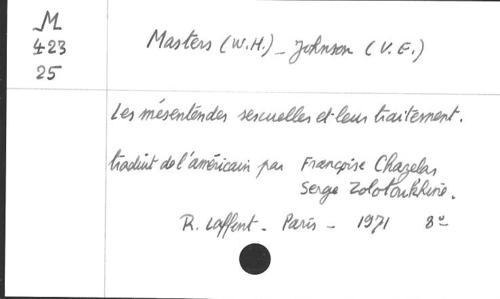 M
423
25
Masters (W.H.) _ Johnson (V.E.)
Les mésententes sexuelles et leur traitement.
traduit de l'américain par Françoise Chazelas
Serge Zolotoukhine.
R. Laffont - Paris - 1971 8º